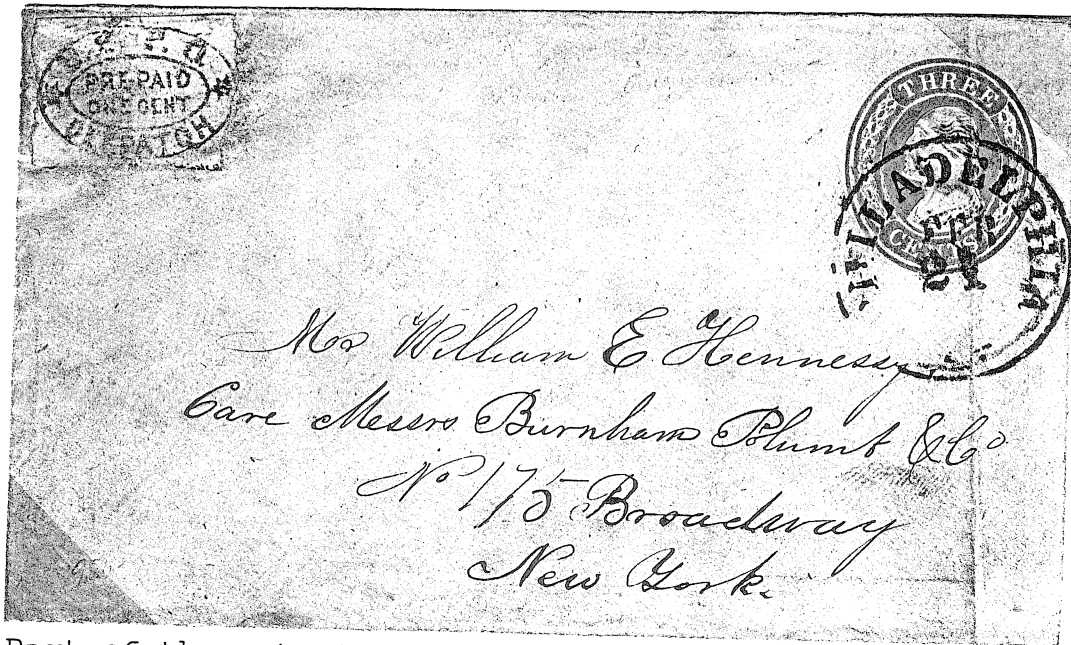 U.S.P.O.
PRE-PAID
ONE CENT
DESPATCH
THREE
CENTS
PHILADELPHIA
21
Mr William E Hennessy
Care Messrs Burnham Plumb & Co
No 175 Broadway
New York.